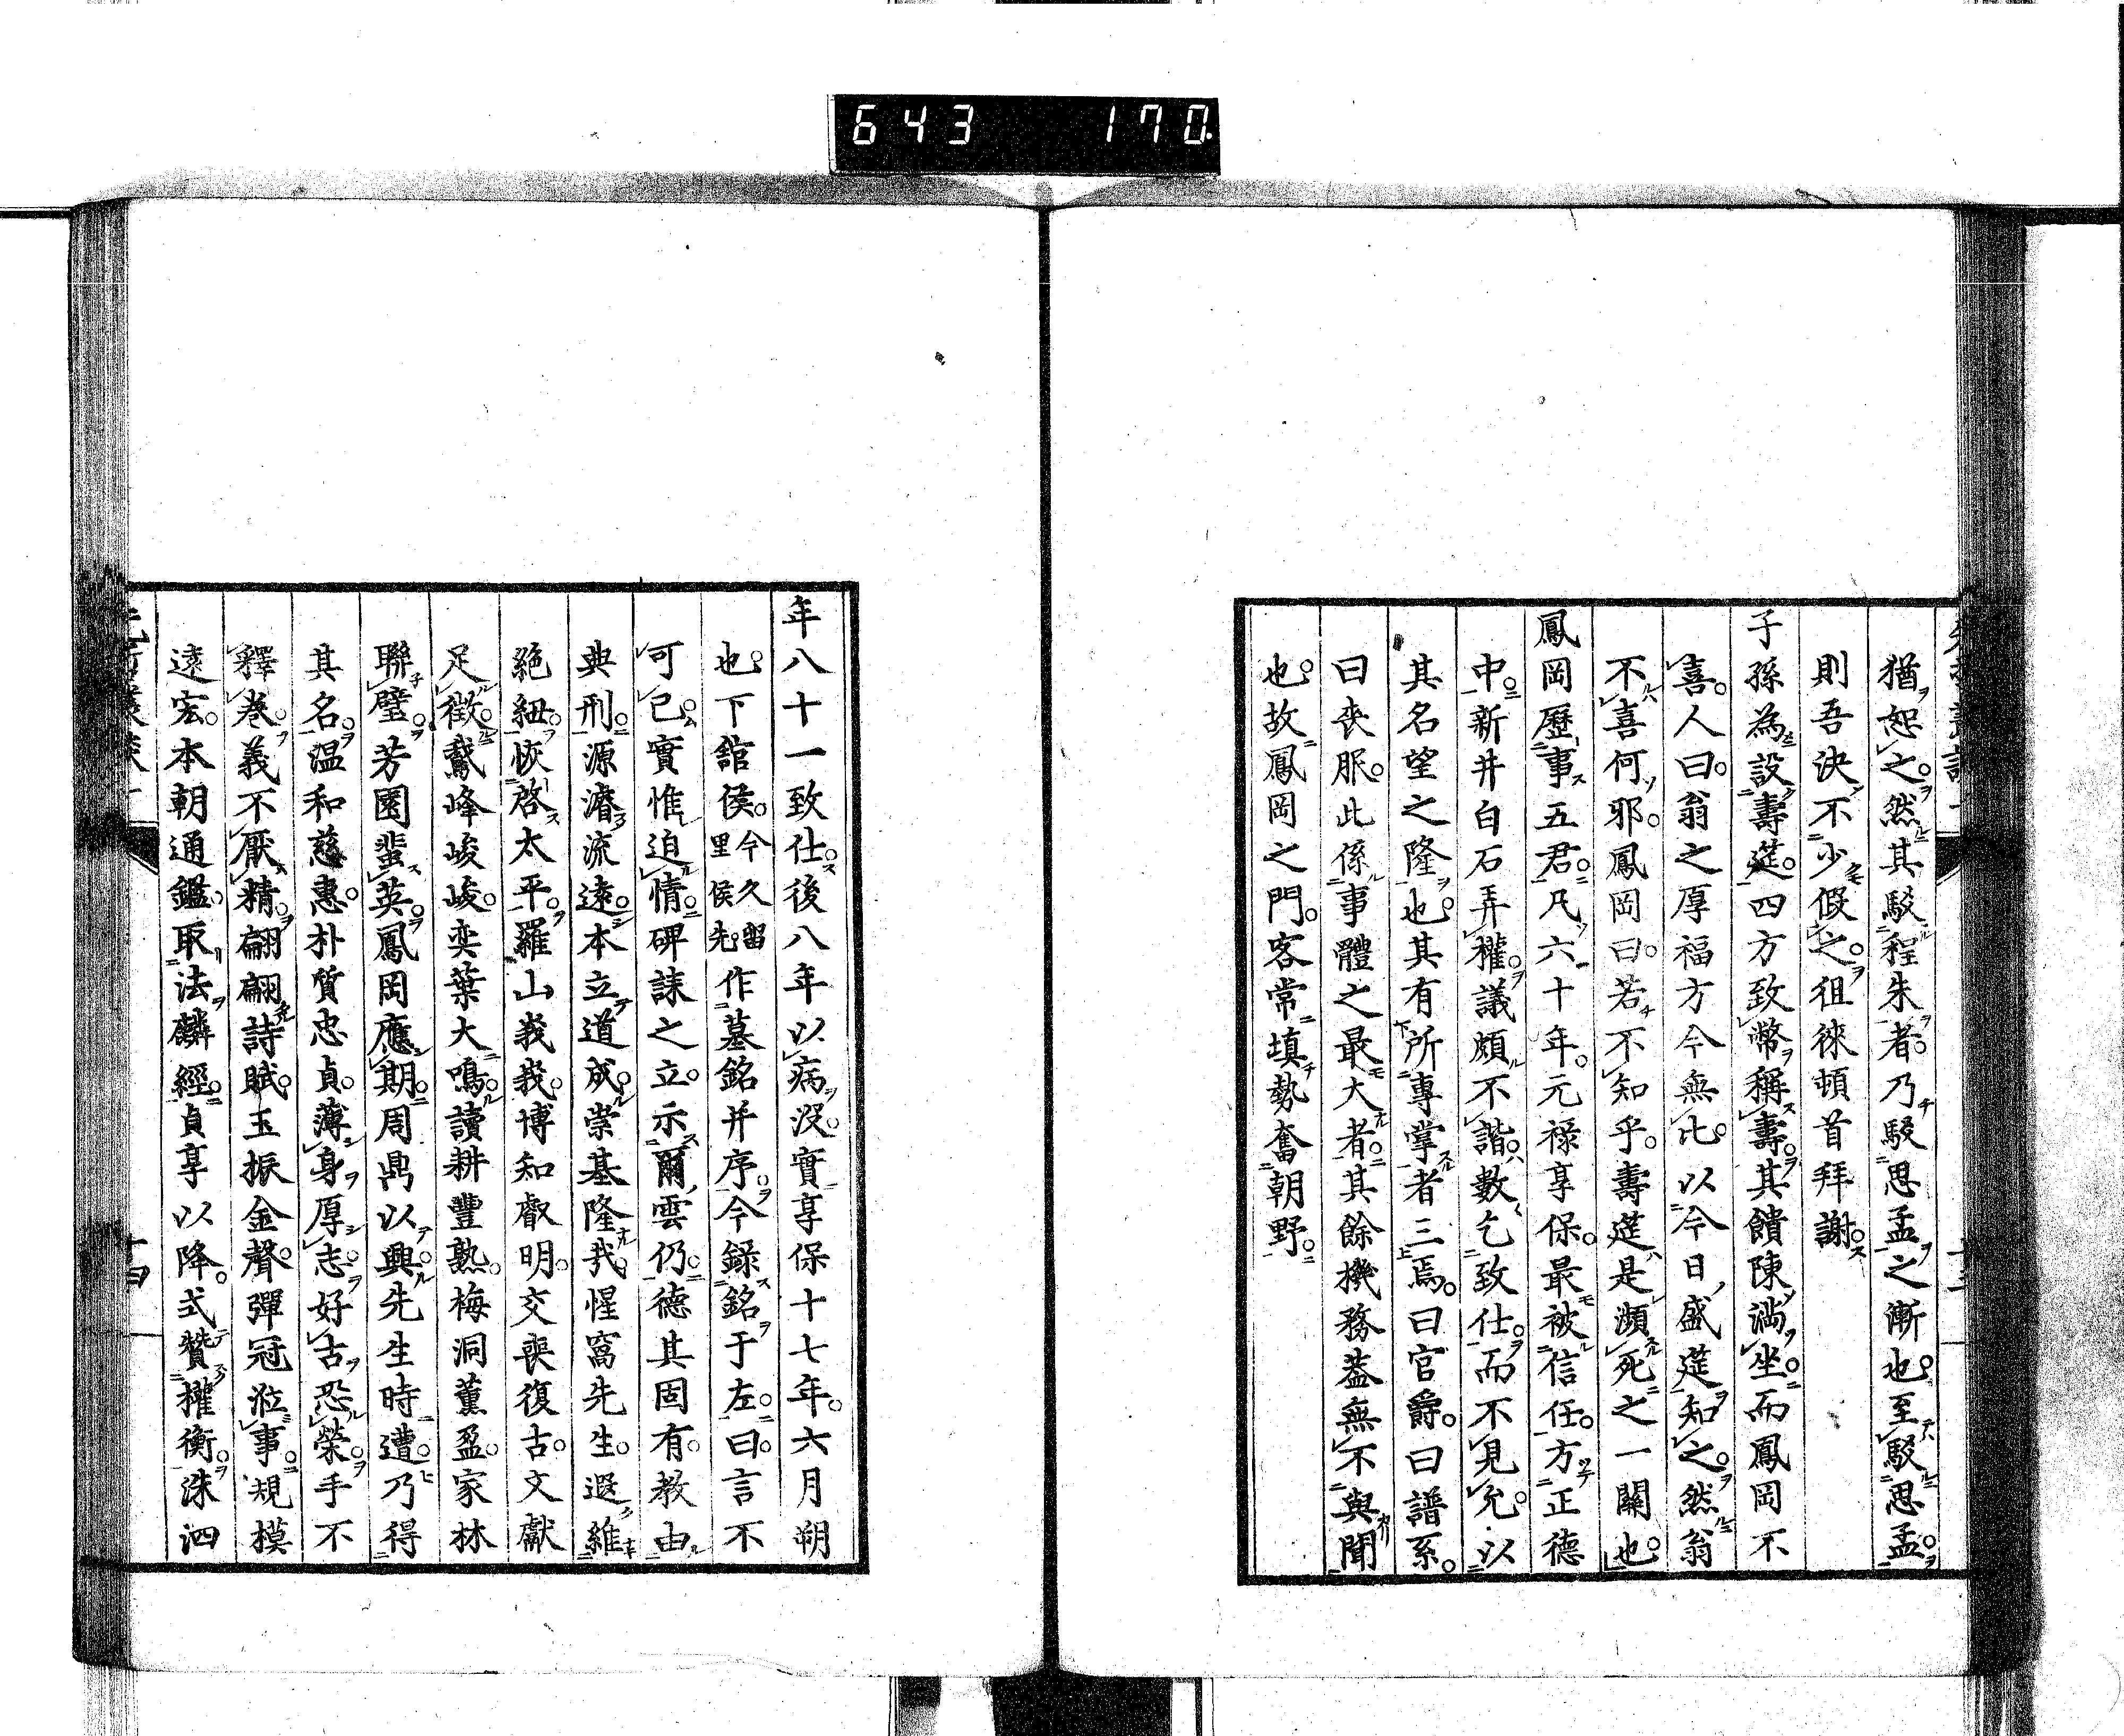 643 170
猶恕之然其駁程朱者乃駁思孟之漸也至駁思孟
則吾決不少假之徂徠頓首拜謝
子孫為設壽筵四方致幣稱壽其饋陳滿坐而鳳岡不
喜人曰翁之厚福方今無比以今日盛筵知之然翁
不喜何邪鳳岡曰若不知乎壽筵是瀕死之一關也
鳳岡歷事五君凡六十年元祿享保最被信任方正德
中新井白石弄權議頗不諧數乞致仕而不見允以
其名望之隆也其有所專掌者三焉曰官爵曰譜系
曰喪服此係事體之最大者其餘機務蓋無不與聞
也故鳳岡之門客常填勢奮朝野
年八十一致仕後八年以病沒實享保十七年六月朔
也下舘侯今久留里侯先作墓銘并序今録銘于左曰言不
可已實惟迫情碑誄之立示爾雲仍德其固有教由
典刑源濬流遠本立道成崇基隆哉惺窩先生遐維
絕紐恢啓太平羅山峩峩博知叡明交喪復古文獻
足徵鵞峰峻峻奕葉大鳴讀耕豐熟梅洞薰盈家林
聯璧芳園蜚英鳳岡應期周鼎以興先生時遭乃得
其名温和慈惠朴質忠貞薄身厚志好古恐榮手不
釋卷義不厭精翩翩詩賦玉振金聲彈冠涖事規模
遠宏本朝通鑑取法麟經貞享以降式贊權衡洙泗